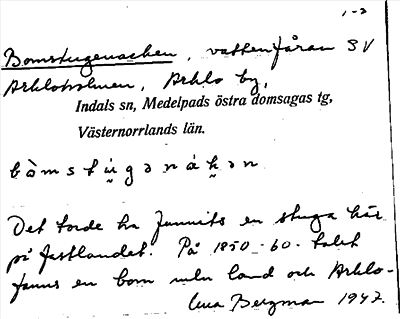 1-2
Bomstugenacken, vattenfåran SV
Arkloholmen, Arklo by,
Indals sn, Medelpads östra domsagas tg,
Västernorrlands län.
Det torde ha funnits en stuga här
på fastlandet. På 1850-60-talet
fanns en bom mln land och Arklo-
Bergman 1947.